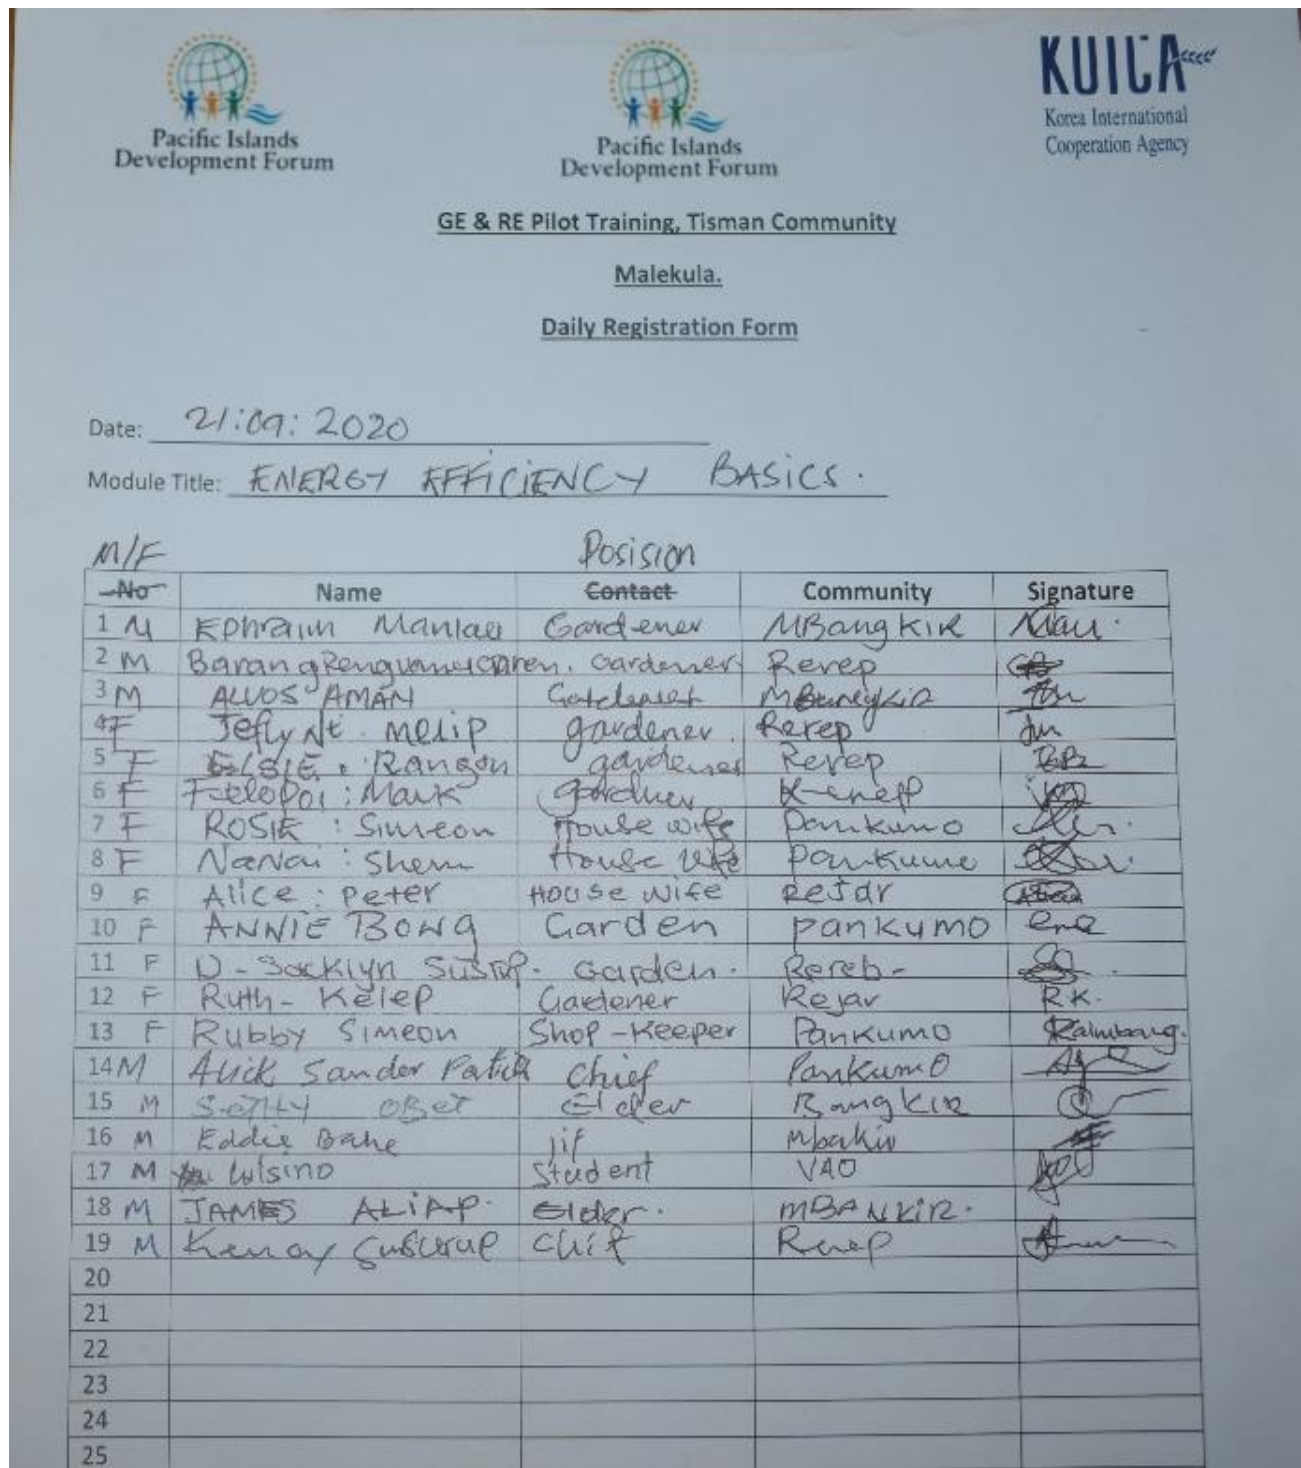 Pacific Islands
Development Forum
Pacific Islands
Development Forum
KOICA
Korea International
Cooperation Agency
GE & RE Pilot Training, Tisman Community
Malekula.
Daily Registration Form
Date: 21:09:2020
Module Title: ENERGY EFFICIENCY BASICS.
M/F Posision
No Name Contact Community Signature
1 M Ephraim Gardener MBangkir
2 M Gardener Rerep
3 M AMAN
4 F Melip gardener Rerep
5 F ELSIE Rangon gardener Rerep
6 F : Mark gardner
7 F ROSIE : Simeon House wife Pankumo
8 F NaNai : Shem House wife Pankumo
9 F Alice : Peter House wife Rejar
10 F ANNIE BONG Garden pankumo
11 F Garden. Rereb-
12 F Ruth- Kelep Gardener Rejar R K.
13 F Rubby Simeon Shop-Keeper Pankumo
14 M Alick Sander Chief Pankumo
15 M Elder Bangkir
16 M Eddie jif
17 M student VAO
18 M JAMES ALIAP. Elder. MBANKIR.
19 M Chif
20
21
22
23
24
25